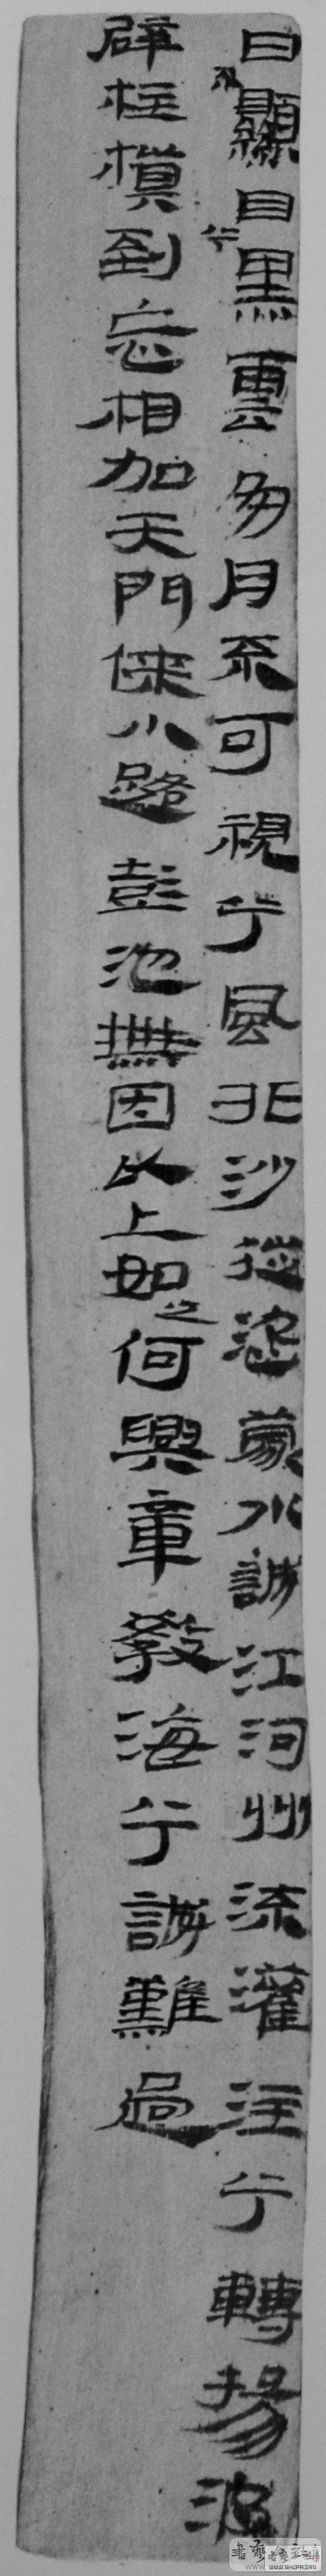 日不顯目兮黑雲多月不可視兮風非沙從恣蒙水誠江河州流灌注兮轉揚波
辟柱槙到忘相加天門俠小路彭池無因以上如之何興章教海兮誠難過